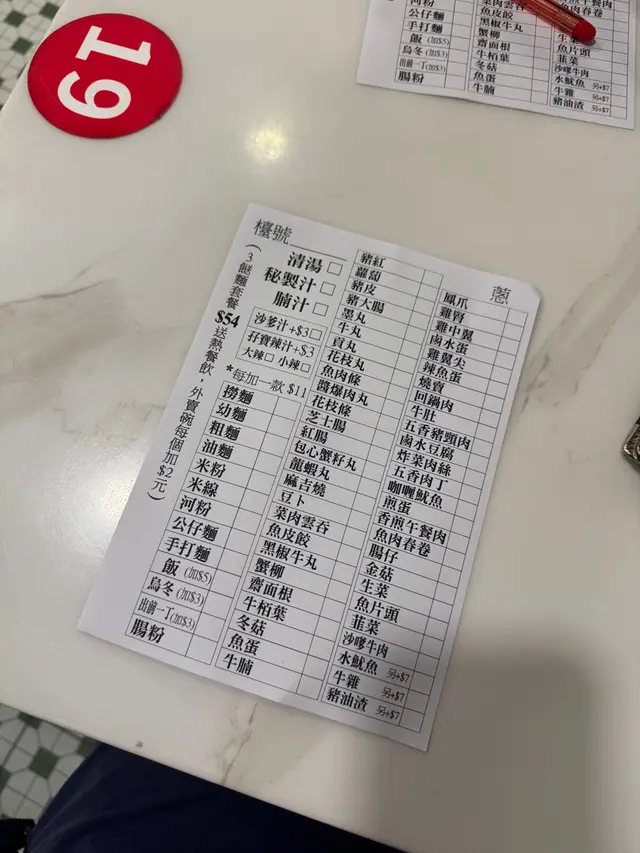 19
河粉
公仔麵
手打麵
飯(加$5)
烏冬(加$3)
出前一丁(加$3)
腸粉
菜肉雲吞
魚皮餃
黑椒牛丸
蟹柳
齋面根
牛栢葉
冬菇
魚蛋
牛腩
香煎午餐肉
魚肉春卷
生菜
魚片頭
韮菜
沙嗲牛肉
水魷魚 另+$7
牛雜 另+$7
豬油渣 另+$7
檯號
蔥
清湯□
秘製汁□
腩汁□
沙爹汁+$3□
孖寶辣汁+$3
大辣□ 小辣□
*每加一款 $11
(3餸麵套餐 $54 送熱餐飲,外賣碗每個加$2元)
撈麵
幼麵
粗麵
油麵
米粉
米線
河粉
公仔麵
手打麵
飯(加$5)
烏冬(加$3)
出前一丁(加$3)
腸粉
豬紅
蘿蔔
豬皮
豬大腸
墨丸
牛丸
貢丸
花枝丸
魚肉條
醬爆肉丸
花枝條
芝士腸
紅腸
包心蟹籽丸
龍蝦丸
麻古燒
豆卜
菜肉雲吞
魚皮餃
黑椒牛丸
蟹柳
齋面根
牛栢葉
冬菇
魚蛋
牛腩
鳳爪
雞腎
雞中翼
鹵水蛋
雞翼尖
辣魚蛋
燒賣
回鍋肉
牛肚
五香豬頸肉
鹵水豆腐
炸菜肉絲
五香肉丁
咖喱魷魚
煎蛋
香煎午餐肉
魚肉春卷
腸仔
金菇
生菜
魚片頭
韮菜
沙嗲牛肉
水魷魚 另+$7
牛雜 另+$7
豬油渣 另+$7